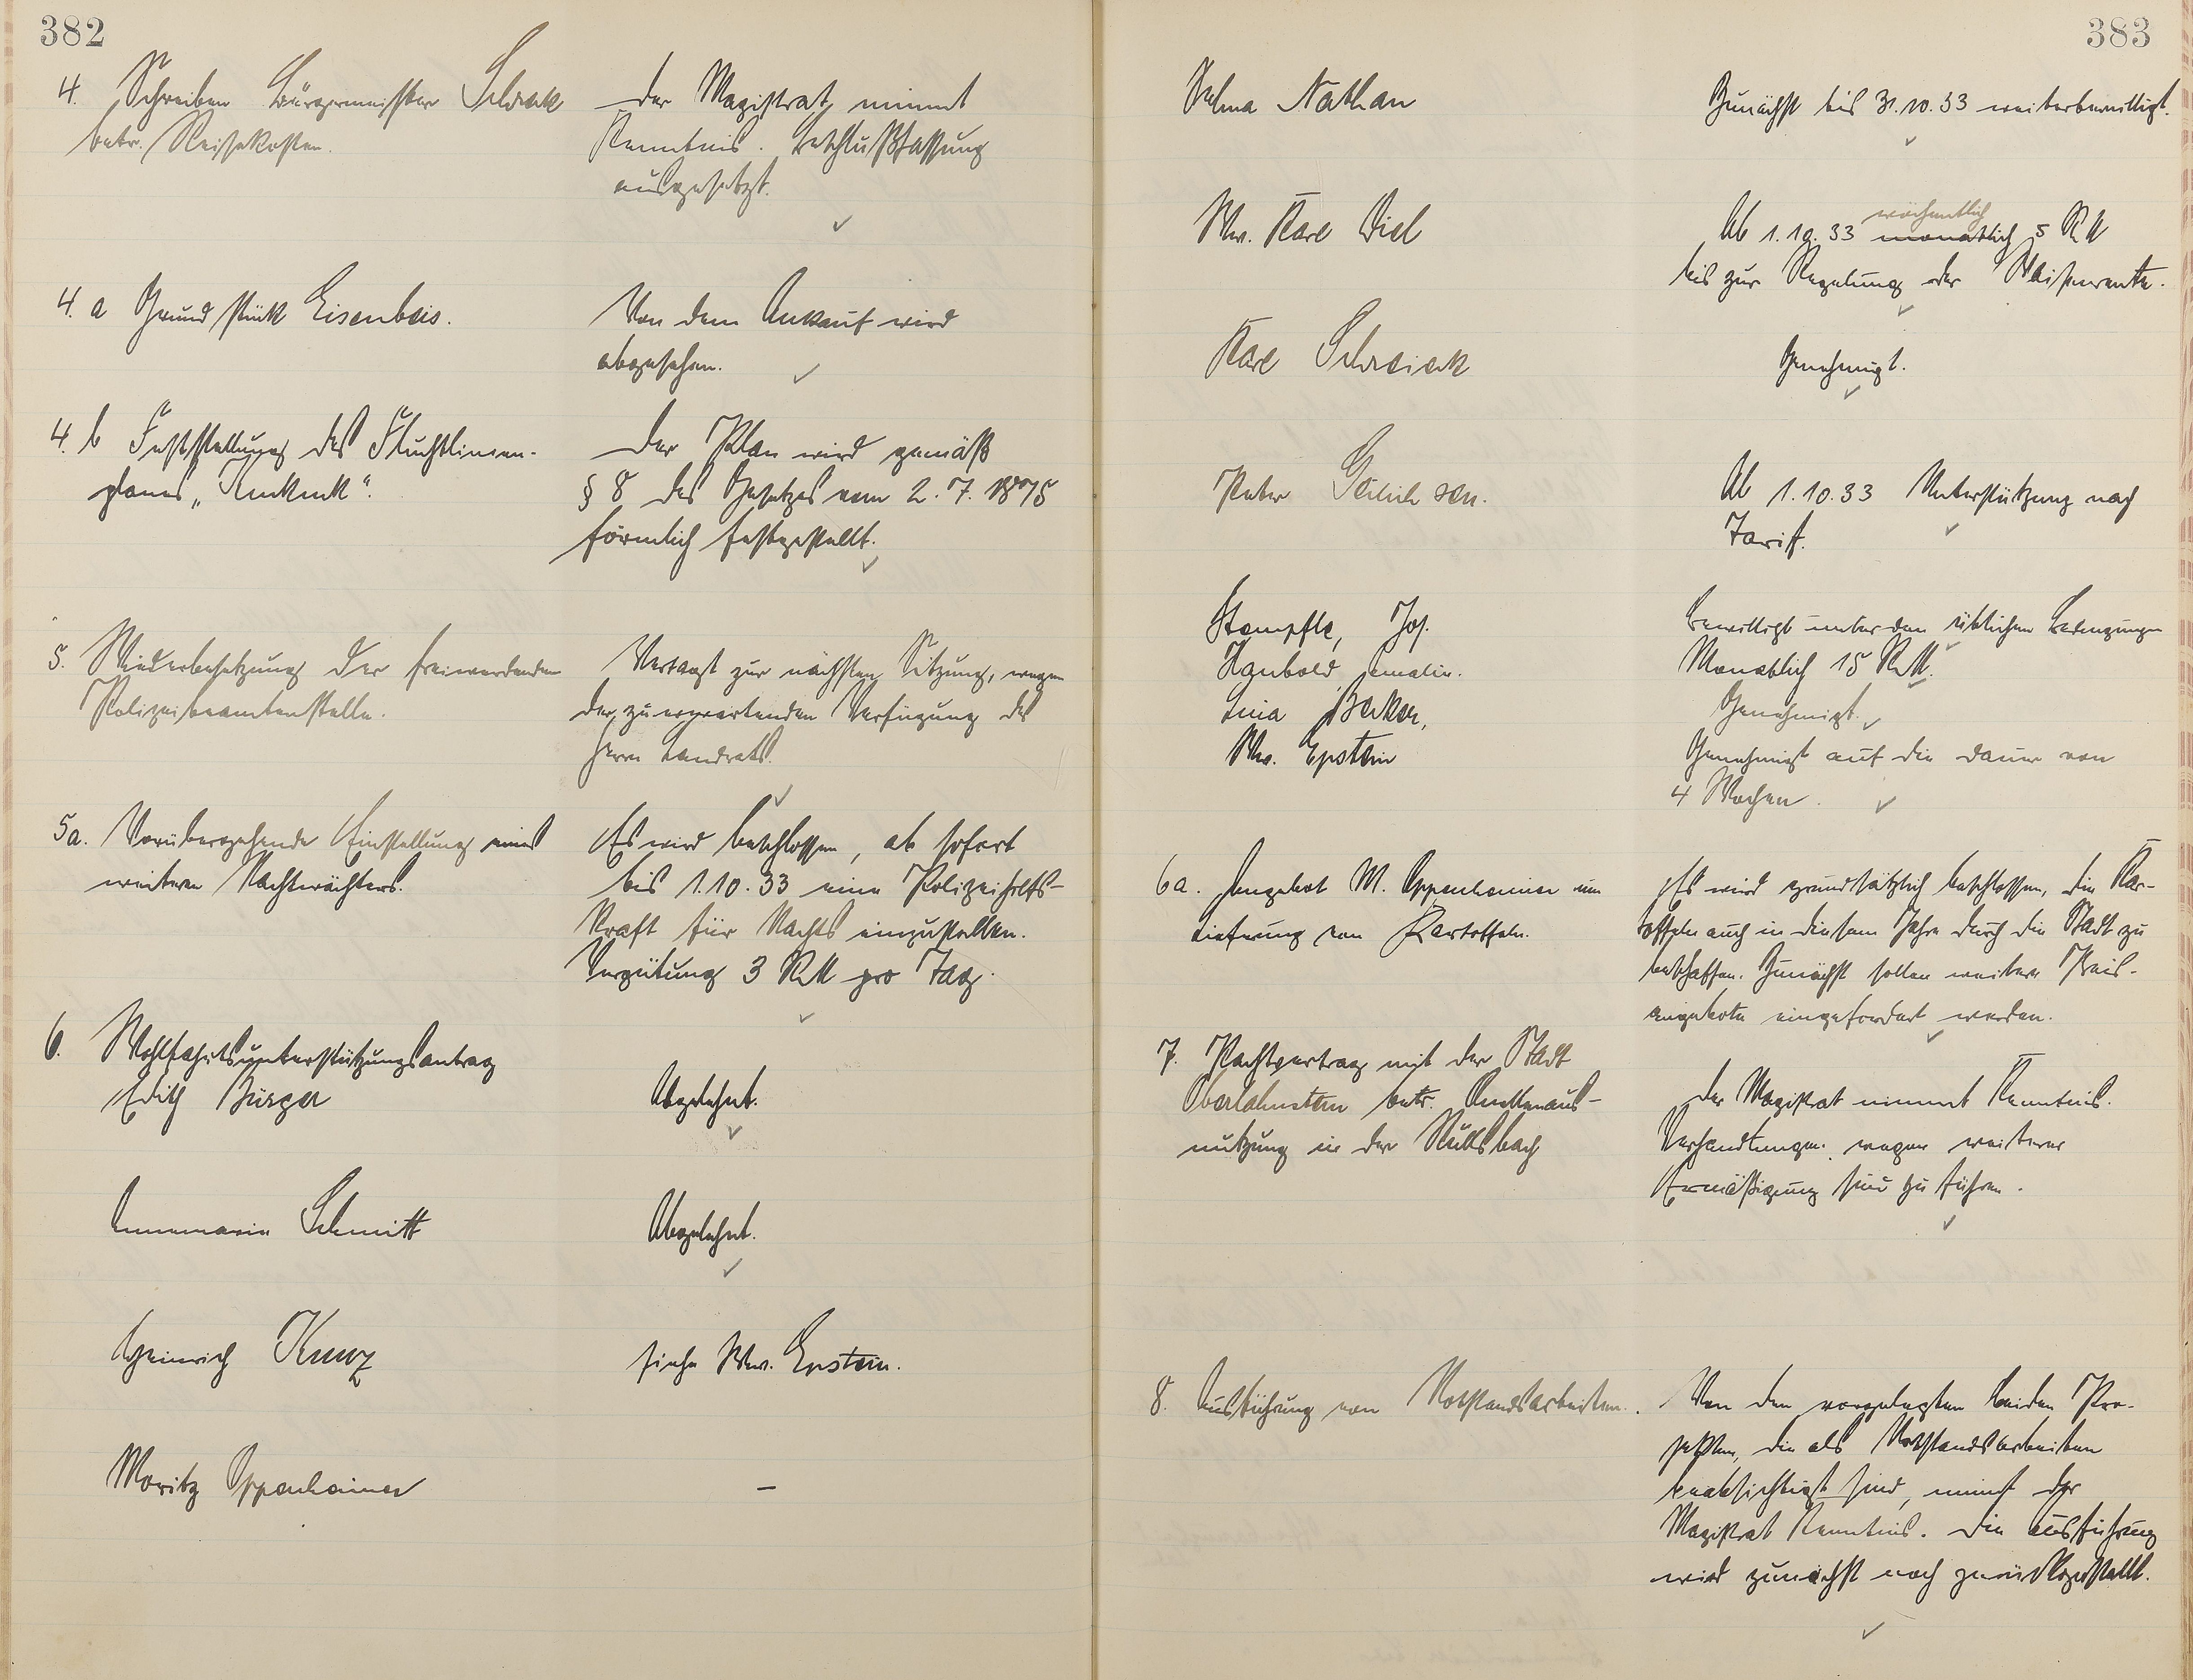 382
4. Schreiben Bürgermeister Schrank
betr. Reisekosten.
Der Magistrat nimmt
Kenntnis. Beschlußfassung
ausgesetzt.
4. a Grundstück Eisenbeis.
Von dem Ankauf wird
abgesehen.
4. b Feststellung des Fluchtlinien-
planes „Kukuk".
Der Plan wird gemäß
§ 8 des Gesetzes vom 2.7.1875
förmlich festgestellt.
5. Wiederbesetzung der freiwerdenden
Polizeibeamtenstelle.
Vertagt zur nächsten Sitzung, wegen
der zu erwartenden Verfügung des
Herrn Landrats.
5a. Vorübergehende Einstellung eines
weiteren Nachtwächters.
Es wird beschlossen, ab sofort
bis 1.10.33 eine Polizeihilfs-
kraft für Nachts einzustellen.
Vergütung 3 RM pro Tag.
6. Wohlfahrtsunterstützungsantrag
Edith Bürger
Abgelehnt.
Annemarie Schmitt
Abgelehnt.
Heinrich Kunz
siehe Ww. Epstein.
Moritz Oppenheimer
—
383
Selma Nathan
Zunächst bis 31.10.33 weiterbewilligt.
Ww. Karl Diel
wöchentlich
Ab 1.10.33 monatlich 5 RM
bis zur Regelung der Waisenrente.
Karl
Genehmigt.
Peter sen.
Ab 1.10.33 Unterstützung nach
Tarif.
Stempfle, Jos.
Bewilligt unter den üblichen Bedingungen
Monatlich 15 RM.
Lina Becker,
Genehmigt.
Ww. Epstein
Genehmigt auf die Dauer von
4 Wochen.
6a. Angebot M. Oppenheimer um
Lieferung von Kartoffeln.
Es wird grundsätzlich beschlossen, die Kar-
toffeln auch in diesem Jahre durch die Stadt zu
beschaffen. Zunächst sollen weitere Preis-
angebote eingefordert werden.
7. Pachtvertrag mit der Stadt
Oberlahnstein betr. Quellenaus-
nutzung in der
Der Magistrat nimmt Kenntnis.
Verhandlungen wegen weiterer
Ermäßigung sind zu führen.
8. Ausführung von Notstandsarbeiten.
Von den vorgelegten beiden Pro-
jekten, die als Notstandsarbeiten
beabsichtigt sind, nimmt der
Magistrat Kenntnis. Die Ausführung
wird zunächst noch zurückgestellt.